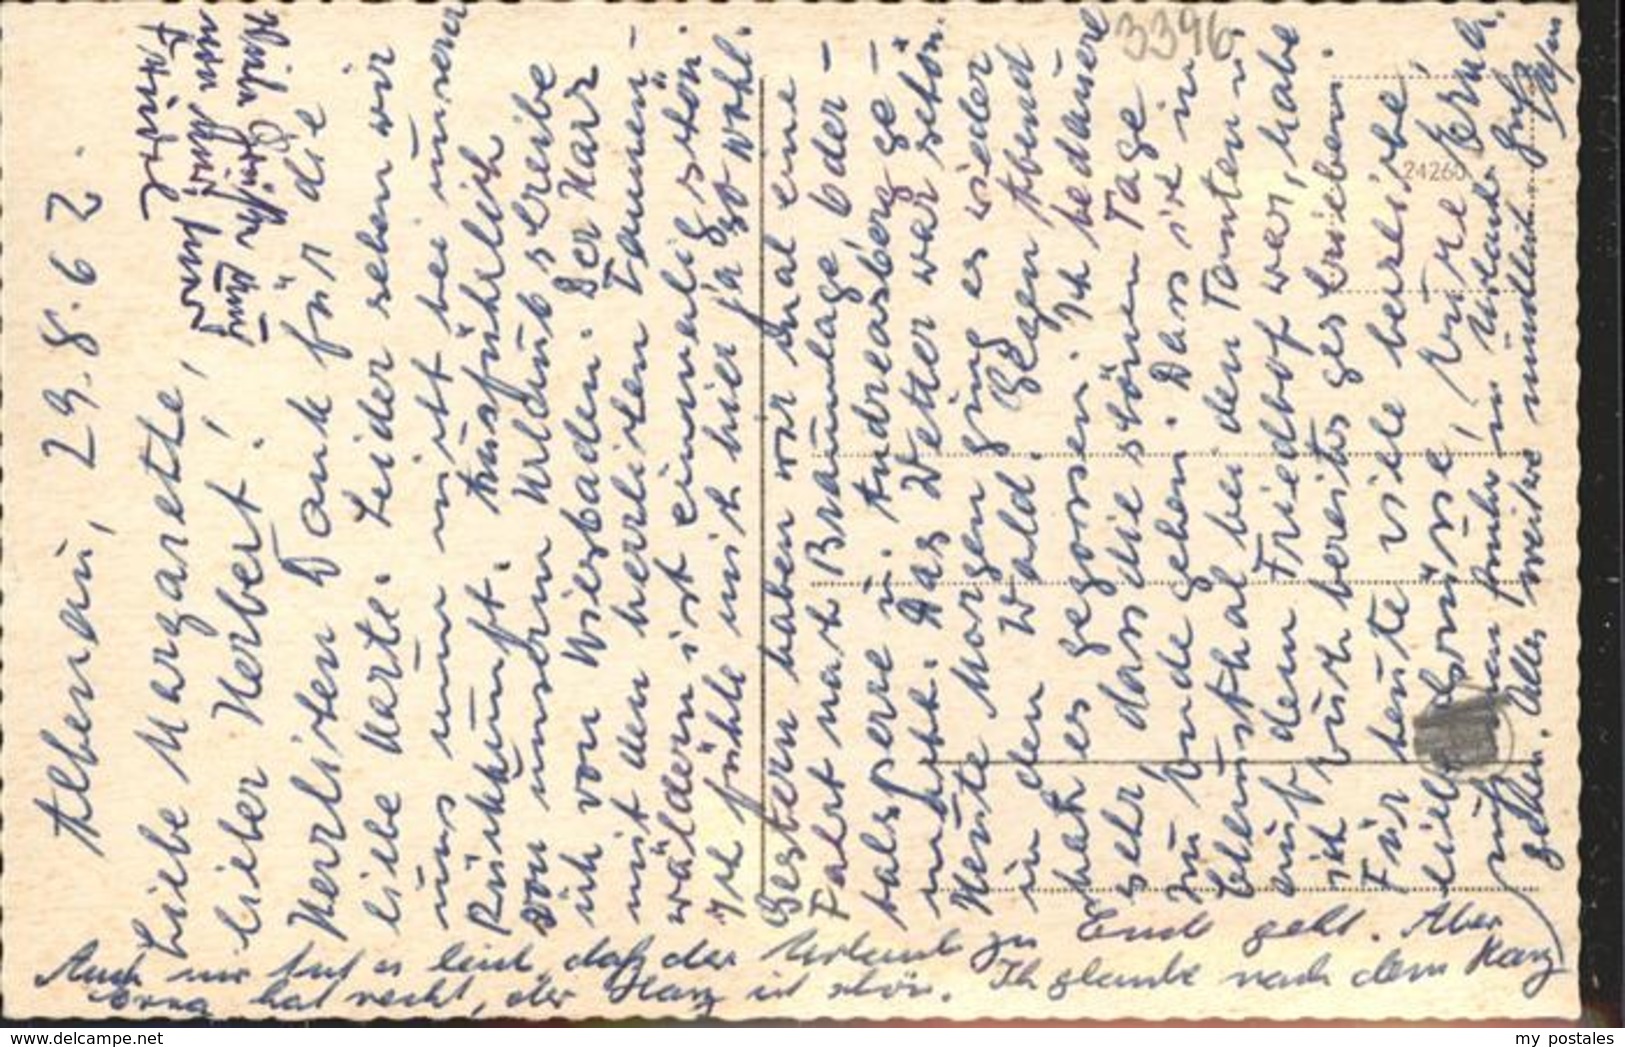 Altenau, 29.8.62.
Liebe Margarethe,
lieber Herbert!
Herzlichen Dank für die
liebe Karte. Leider sehen wir
uns nun nicht bei unserer
Rückkunft. Ausführlich
von unserm Urlaub schreibe
ich von Wiesbaden. Der Harz
mit den herrlichen Tannen-
wäldern ist einmalig schön.
Ich fühle mich hier ja so wohl.
Gestern haben wir mal eine
Fahrt nach Braunlage, Oder-
talsperre u. Andreasberg ge-
macht. Das Wetter war schön.
Heute Morgen ging es wieder
in den Wald. Gegen Abend
hat es gegossen. Ich bedauere
sehr dass die schönen Tage
zu Ende gehen. Dass ich in
Clausthal bei den Tanten u.
auf dem Friedhof war, habe
ich Euch bereits geschrieben.
Für heute viele herzliche,
liebe Grüsse, Eure Erna.
Auch mir tut es leid, daß der Urlaub zu Ende geht. Aber
Erna hat recht, der Harz ist schön. Ich glaube nach dem Harz
gehen. Alles weitere mündlich. Gruß
3396
24260
my postales